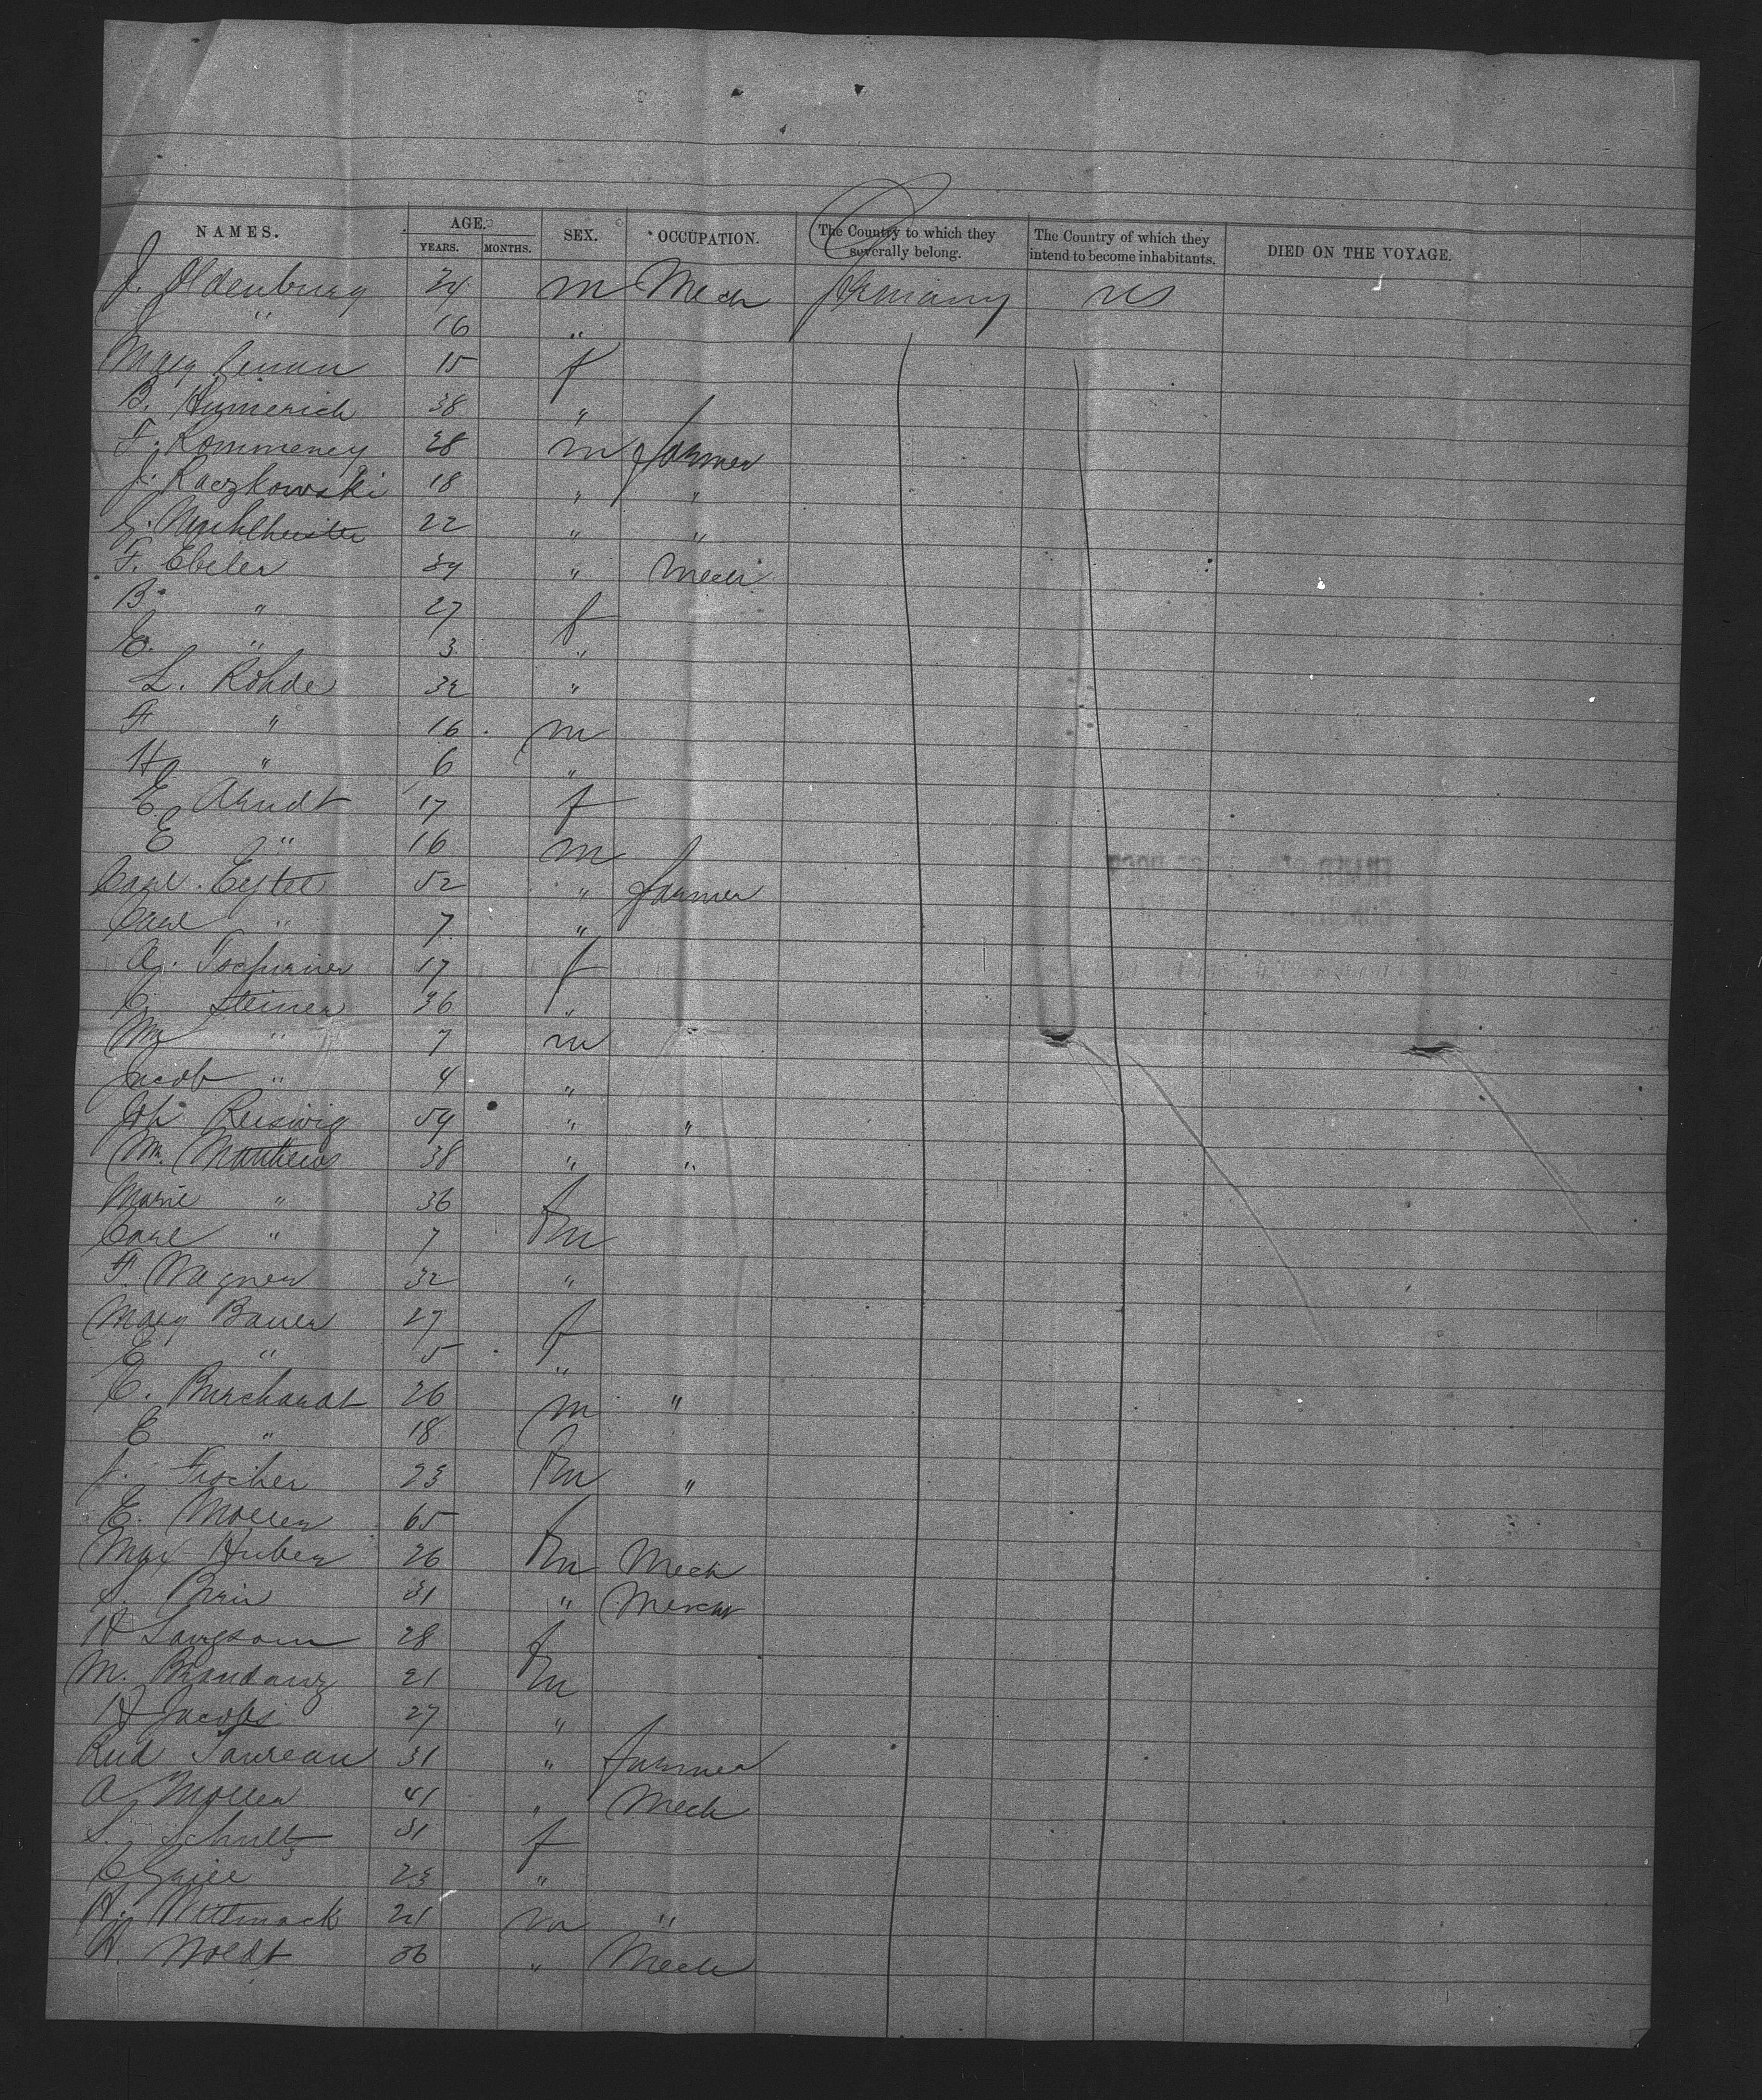 NAMES. AGE. YEARS. MONTHS. SEX. OCCUPATION. The Country to which they severally belong. The Country of which they intend to become inhabitants. DIED ON THE VOYAGE.
J. Oldenburg 24 m Mech Germany US
" 16 "
Mary 15 f
B. Humerich 38 "
F. Rommeney 28 m farmer
J. Kaczkowski 18 " "
22 " "
F. Ebeler 34 " Mech
B. " 27 f
E. " 3 "
L. Rohde 32 "
F " 16 m
H " 6 "
E. Arndt 17 f
E " 16 m
Carl 52 " farmer
Carl " 7 "
A. 17 f
C. Steiner 36 "
" 7 m
Jacob " 4 "
Joh Reiswig 54 " "
Matthews 38 " "
Marie " 36 f
Carl " 7 m
F. Wagner 32 "
Mary Bauer 27 f
E " 5 "
C. Burchardt 26 m "
E " 18 f
J. Fischer 23 m "
E. Moller 65 f
Max Huber 26 m Mech
S. 31 " Merch
H Langsam 28 f
M. 21 m
H Jacobs 27 "
Rud Taureau 31 " farmer
A Moller 41 " Mech
S. Schultz 31 f
23 "
H. Wittmack 21 m "
H. Noldt 36 " Mech